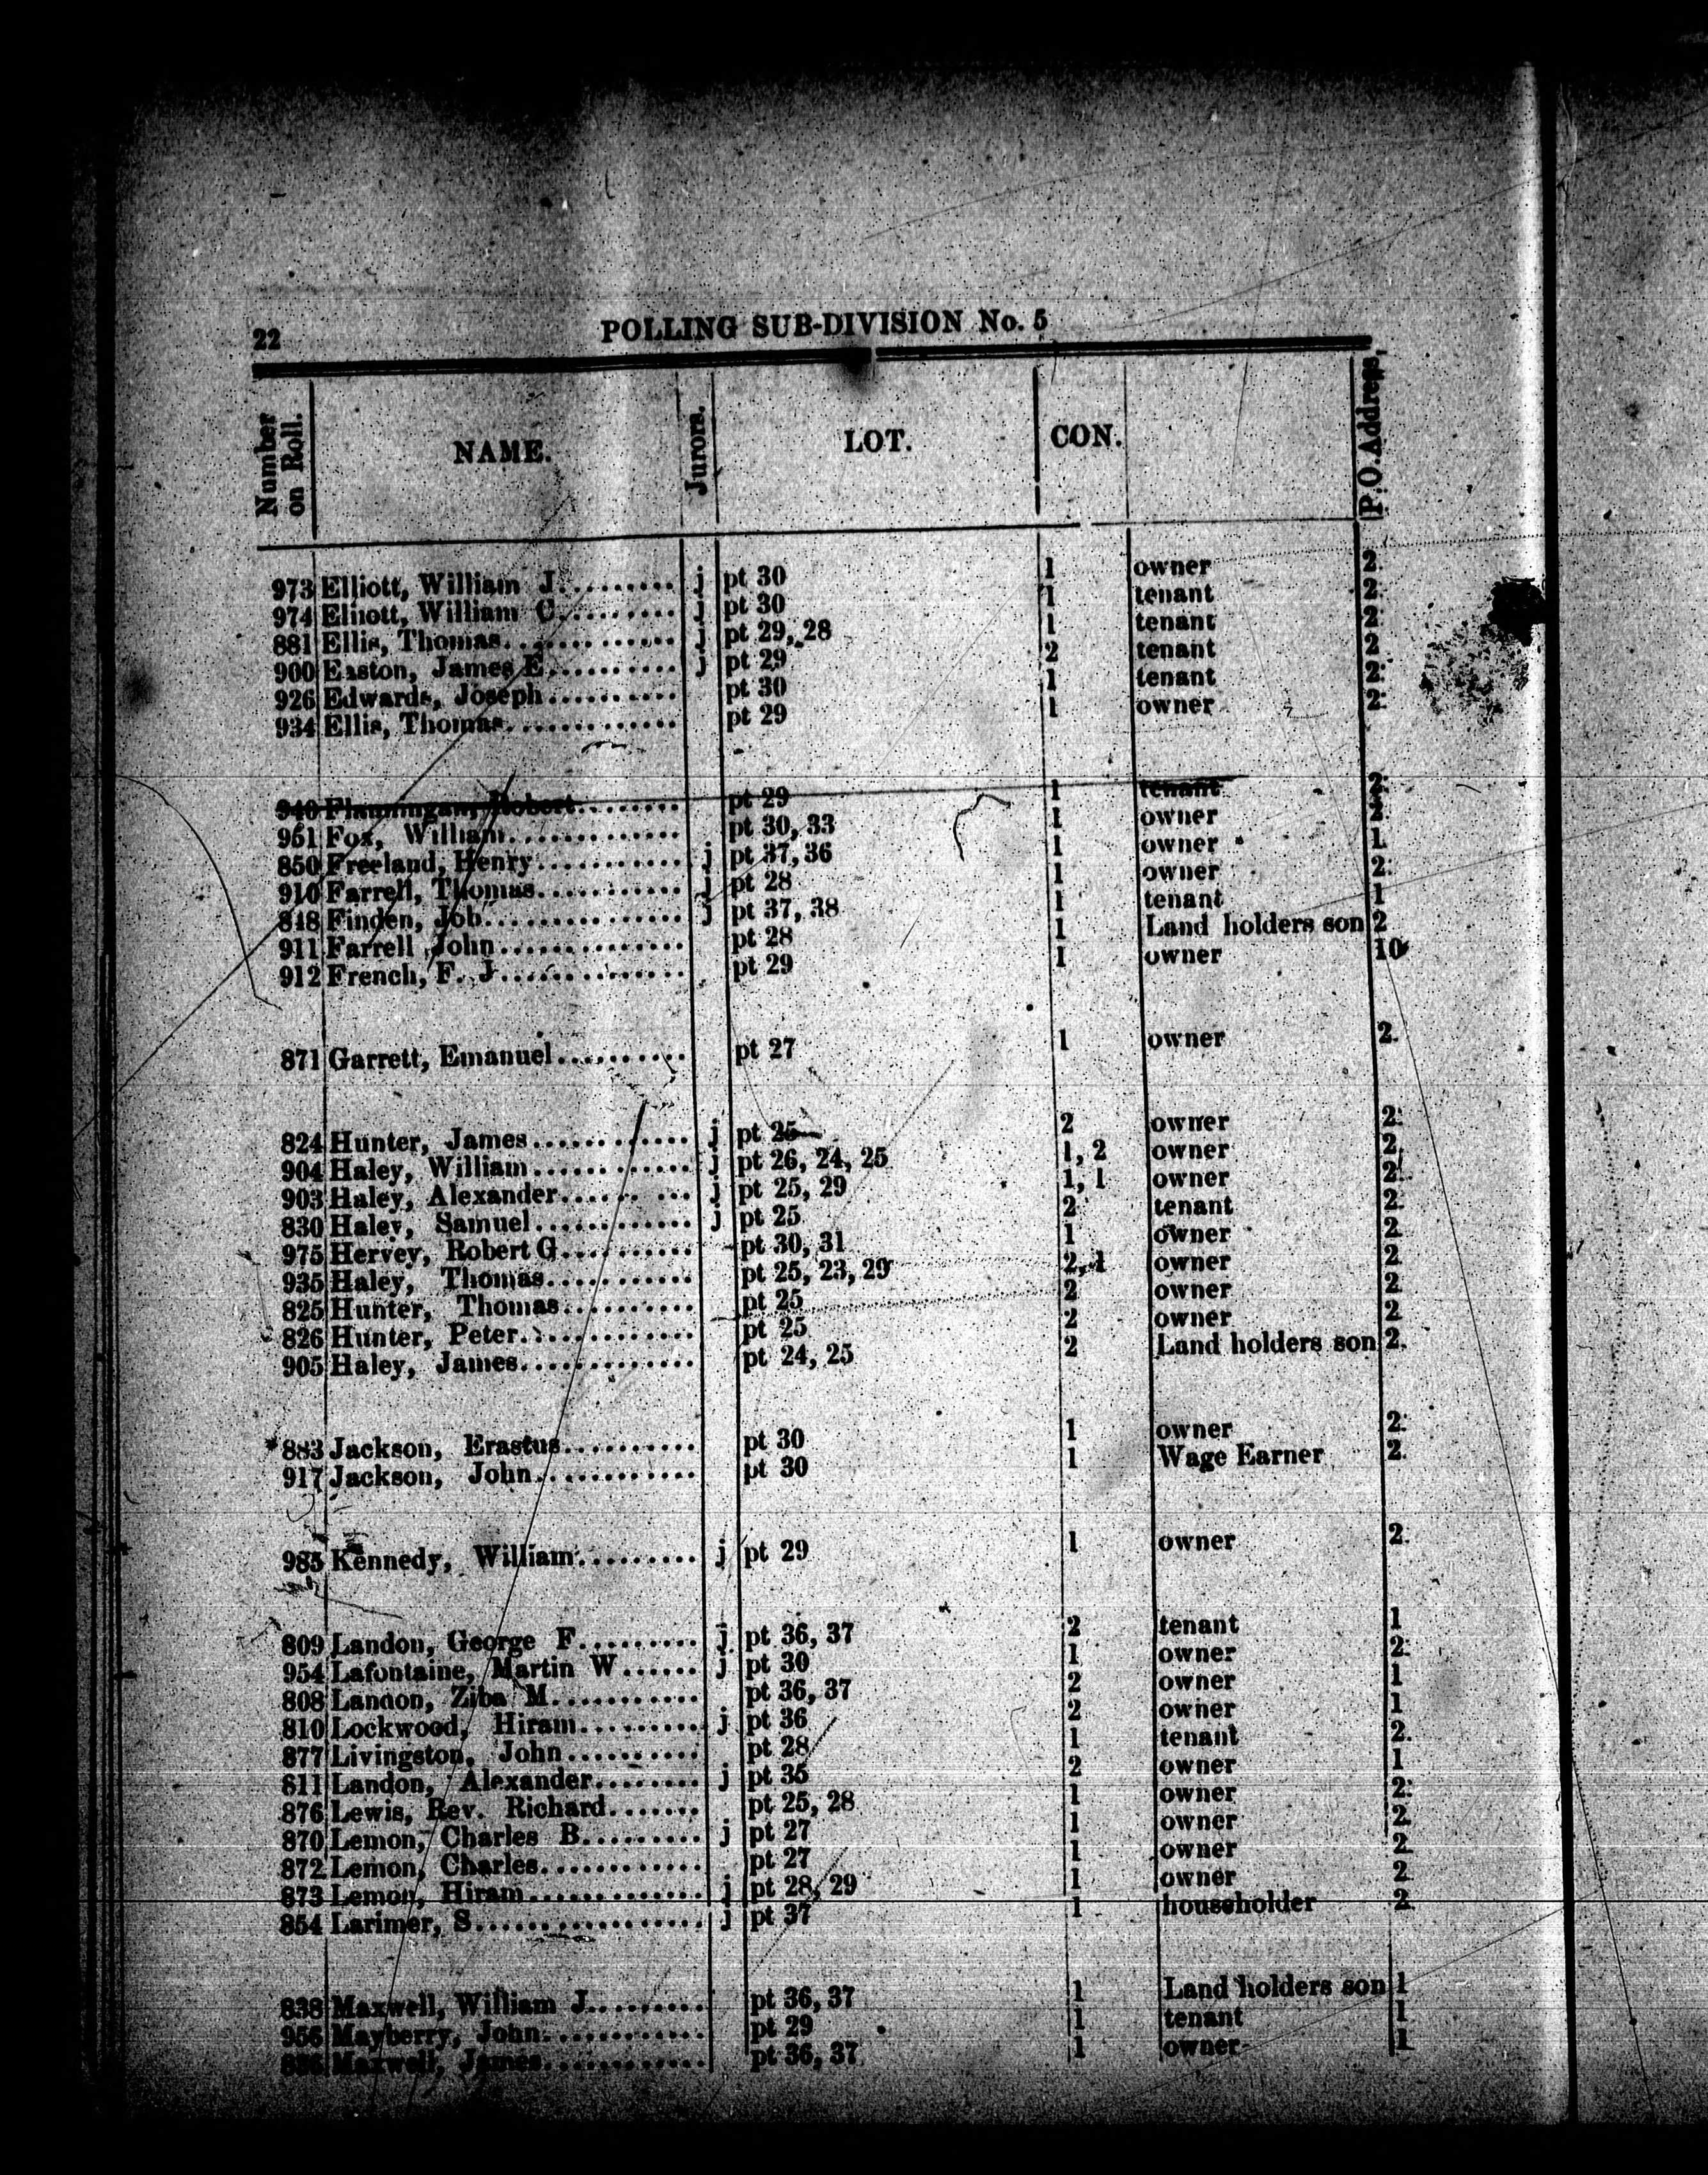 22 POLLING SUB-DIVISION No. 5
Number on Roll. NAME. Jurors. LOT. CON. P.O. Address,
973 Elliott, William J......... j pt 30 1 owner 2
974 Elliott, William C......... j pt 30 1 tenant 2.
881 Ellis, Thomas............ j pt 29, 28 1 tenant 2
900 Easton, James E.......... j pt 29 2 tenant 2
926 Edwards, Joseph.......... pt 30 1 tenant 2.
934 Ellis, Thomas............. pt 29 1 owner 2.
940 Flanningan, Robert........ pt 29 1 tenant 2.
951 Fox, William............. pt 30, 33 1 owner 2.
850 Freeland, Henry........... j pt 37, 36 1 owner 1.
910 Farrell, Thomas........... j pt 28 1 owner 2.
848 Finden, Job............... j pt 37, 38 1 tenant 1
911 Farrell John.............. pt 28 1 Land holders son 2
912 French, F. J.............. pt 29 1 owner 10
871 Garrett, Emanuel.......... pt 27 1 owner 2.
824 Hunter, James............ j pt 25 2 owner 2.
904 Haley, William............ j pt 26, 24, 25 1, 2 owner 2.
903 Haley, Alexander...... ... j pt 25, 29 1, 1 owner 2.
830 Haley, Samuel............ j pt 25 2 tenant 2.
975 Hervey, Robert G.......... pt 30, 31 1 owner 2.
935 Haley, Thomas........... pt 25, 23, 29 2, 1 owner 2
825 Hunter, Thomas.......... pt 25 2 owner 2.
826 Hunter, Peter............. pt 25 2 owner 2
905 Haley, James............. pt 24, 25 2 Land holders son 2.
883 Jackson, Erastus.......... pt 30 1 owner 2.
917 Jackson, John............ pt 30 1 Wage Earner 2.
985 Kennedy, William......... j pt 29 1 owner 2.
809 Landon, George F......... j pt 36, 37 2 tenant 1
954 Lafontaine, Martin W...... j pt 30 1 owner 2.
808 Landon, Ziba M........... pt 36, 37 2 owner 1
810 Lockwood, Hiram.......... j pt 36 2 owner 1
877 Livingston, John.......... pt 28 1 tenant 2.
811 Landon, Alexander........ j pt 35 2 owner 1
876 Lewis, Rev. Richard....... pt 25, 28 1 owner 2.
870 Lemon, Charles B......... j pt 27 1 owner 2.
872 Lemon, Charles............ pt 27 1 owner 2.
873 Lemon, Hiram............. j pt 28, 29 1 owner 2
854 Larimer, S................. j pt 37 1 householder 2.
838 Maxwell, William J......... pt 36, 37 1 Land holders son 1
956 Mayberry, John............ pt 29 1 tenant 1
Maxwell, James............ pt 36, 37 1 owner 1